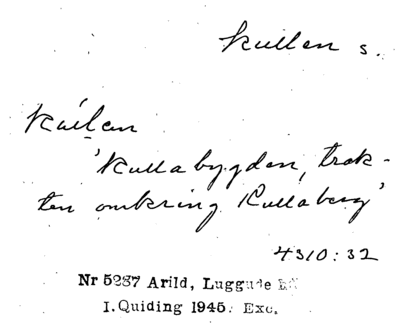 Kullen s.
'Kullabygden, trak-
ten omkring Kullaberg'
4310:32
Nr 5287 Arild, Luggude
I. Quiding 1945. Exc.